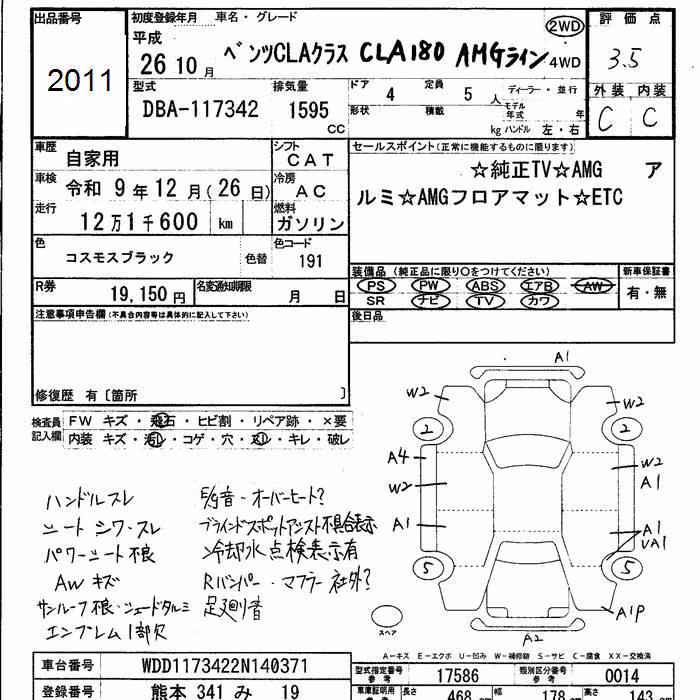 出品番号
2011
初度登録年月 車名・グレード
平成
26 10 月
ベンツCLAクラス CLA180 AMGライン
2WD
4WD
評価点
3.5
外装 内装
C C
型式
DBA-117342
排気量
1595
cc
ドア 4
定員 5 人
形状
積載 kg
ディーラー・並行
モデル年式 年
ハンドル 左・右
車歴 自家用
シフト CAT
車検 令和 9 年 12 月 (26 日)
冷房 AC
走行 12万1千600 km
燃料 ガソリン
色 コスモスブラック
色替
色コード 191
R券 19,150 円
名変通知期限 月 日
セールスポイント(正常に機能するものに限ります)
☆純正TV☆AMG ア
ルミ☆AMGフロアマット☆ETC
装備品(純正品に限り○をつけてください)
PS PW ABS エアB AW
SR ナビ TV カワ
新車保証書
有・無
後日品
注意事項申告欄(不具合内容等は具体的に記入して下さい)
修復歴 有〔箇所 〕
検査員記入欄
FW キズ・飛石・ヒビ割・リペア跡・×要
内装 キズ・汚レ・コゲ・穴・スレ・キレ・破レ
ハンドルスレ
シートシワ・スレ
パワーシート不良
AWキズ
サンルーフ不良・シェードタルミ
エンブレム1部欠
E/g音・オーバーヒート?
ブラインドスポットアシスト不具合表示
冷却水点検表示有
Rバンパー・マフラー社外?
足廻り音
A1
W2
W2
2
2
A4
W2
W2
A1
A1
A1
VA1
5
5
A1P
A2
スペア
A-キズ E-エクボ U-凹み W-補修跡 S-サビ C-腐食 XX-交換済
車台番号 WDD1173422N140371
登録番号 熊本 341 み 19
型式指定番号 参考 17586
類別区分番号 参考 0014
車庫証明用 長さ 468 cm 幅 178 cm 高さ 143 cm